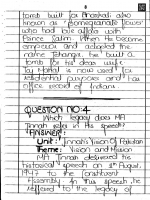 tomb built for Anarkali also
known as "Pomegranate flower"
who had love affair with
Prince Salim. When he became
emperor and adopted the
name Jehangir, he built a
tomb for his dear wife.
Taj Mahal is now used for
residential purposes and the
office record of Indians.
QUESTION NO:4
Which legacy does MA
Jinnah refer in his speech?
ANSWER:
Unit: Jinnah's Vision of Pakistan
Theme: Vision and Mission
MA Jinnah delivered his
historical speech on 11 August,
1947 to the Constituent
Assembly. In this speech he
referred to the legacy of